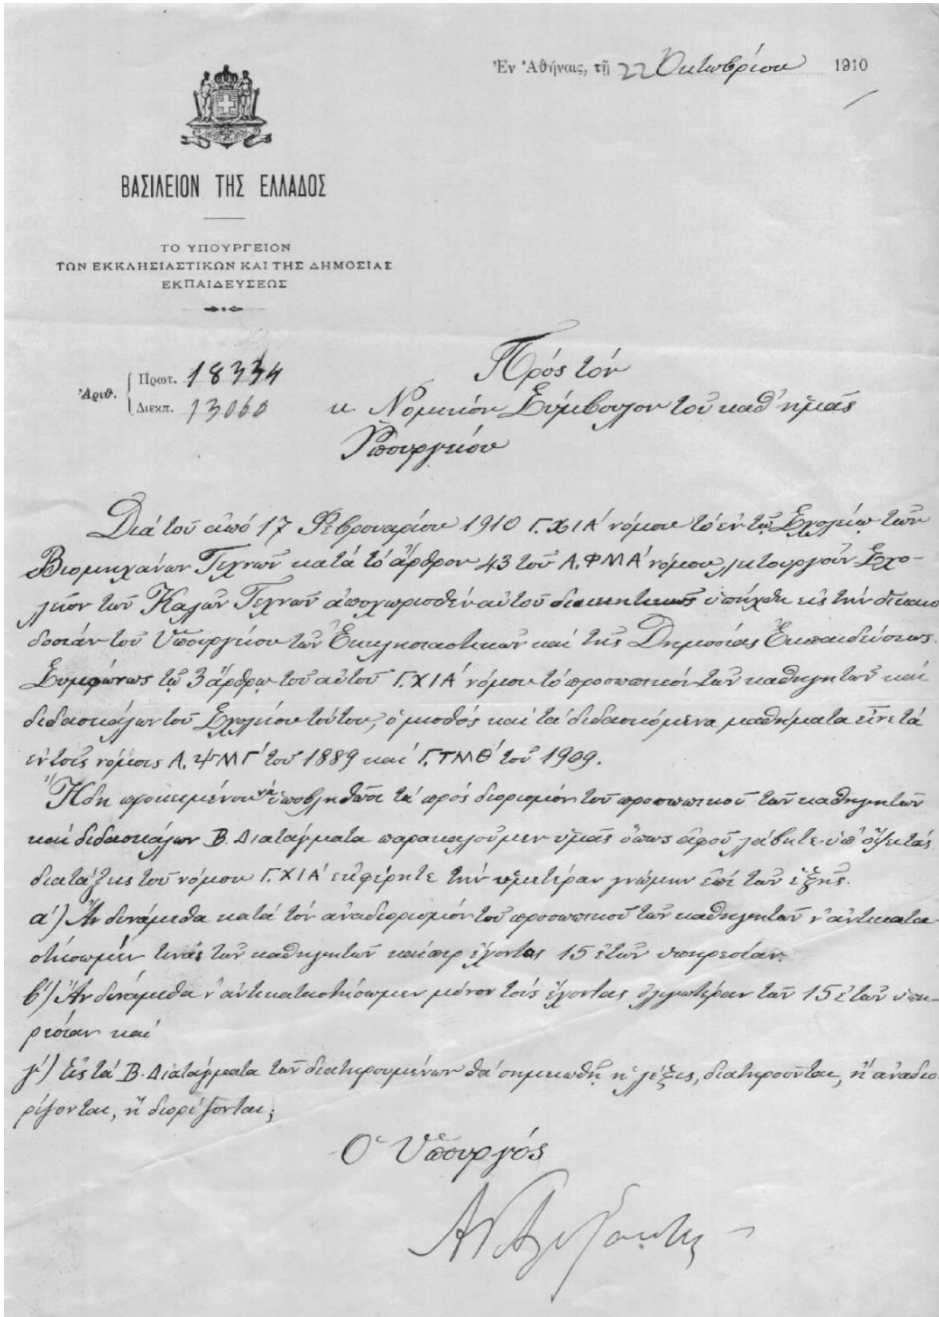 Ἐν Ἀθήναις, τῇ 22 Ὀκτωβρίου 1910
ΒΑΣΙΛΕΙΟΝ ΤΗΣ ΕΛΛΑΔΟΣ
ΤΟ ΥΠΟΥΡΓΕΙΟΝ
ΤΩΝ ΕΚΚΛΗΣΙΑΣΤΙΚΩΝ ΚΑΙ ΤΗΣ ΔΗΜΟΣΙΑΣ
ΕΚΠΑΙΔΕΥΣΕΩΣ
Ἀριθ. Πρωτ. 18334
Διεκπ. 13060
Πρός τόν
κ. Νομικόν Σύμβουλον τοῦ καθ' ἡμᾶς
Ὑπουργείου
Διά τοῦ ἀπό 17 Φεβρουαρίου 1910 Γ.ΧΙΑ' νόμου τό ἐν τῷ Σχολείῳ τῶν
Βιομηχάνων Τεχνῶν κατά τό ἄρθρον 43 τοῦ Α.ΦΜΑ' νόμου λειτουργοῦν Σχο-
λεῖον τῶν Καλῶν Τεχνῶν ἀποχωρισθέν αὐτοῦ διοικητικῶς ὑπήχθη εἰς τήν δικαιο
δοσίαν τοῦ Ὑπουργείου τῶν Ἐκκλησιαστικῶν καί τῆς Δημοσίας Ἐκπαιδεύσεως.
Συμφώνως τῷ 3 ἄρθρῳ τοῦ αὐτοῦ Γ.ΧΙΑ' νόμου τό προσωπικόν τῶν καθηγητῶν καί
διδασκάλων τοῦ Σχολείου τούτου, ὁ μισθός καί τά διδασκόμενα μαθήματα εἶνε τά
ἐν τοῖς νόμοις Α.ΨΜΓ' τοῦ 1889 καί Γ.ΤΜΘ' τοῦ 1909.
Ἤδη προκειμένου νά ὑποβληθῶσι τά πρός διορισμόν τοῦ προσωπικοῦ τῶν καθηγητῶν
καί διδασκάλων Β. Διατάγματα παρακαλοῦμεν ὑμᾶς ὅπως ἀφοῦ λάβητε ὑπ' ὄψει τάς
διατάξεις τοῦ νόμου Γ.ΧΙΑ' ἐκφέρητε τήν ὑμετέραν γνώμην ἐπί τῶν ἑξῆς.
α') Ἄν δυνάμεθα κατά τόν ἀναδιορισμόν τοῦ προσωπικοῦ τῶν καθηγητῶν ν' ἀντικατα
στήσωμεν τινάς τῶν καθηγητῶν καίπερ ἔχοντας 15 ἐτῶν ὑπηρεσίαν.
β') Ἄν δυνάμεθα ν' ἀντικαταστήσωμεν μόνον τούς ἔχοντας ὀλιγωτέραν τῶν 15 ἐτῶν ὑπη-
ρεσίαν καί
γ') Εἰς τά Β. Διατάγματα τῶν διατηρουμένων θά σημειωθῇ ἡ λέξις, διατηροῦνται, ἤ ἀναδιο
ρίζονται, ἤ διορίζονται;
Ὁ Ὑπουργός